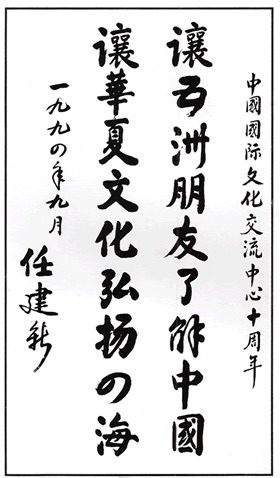 中國國际文化交流中心十周年
讓五洲朋友了解中國
讓華夏文化弘扬四海
一九九四年九月
任建新